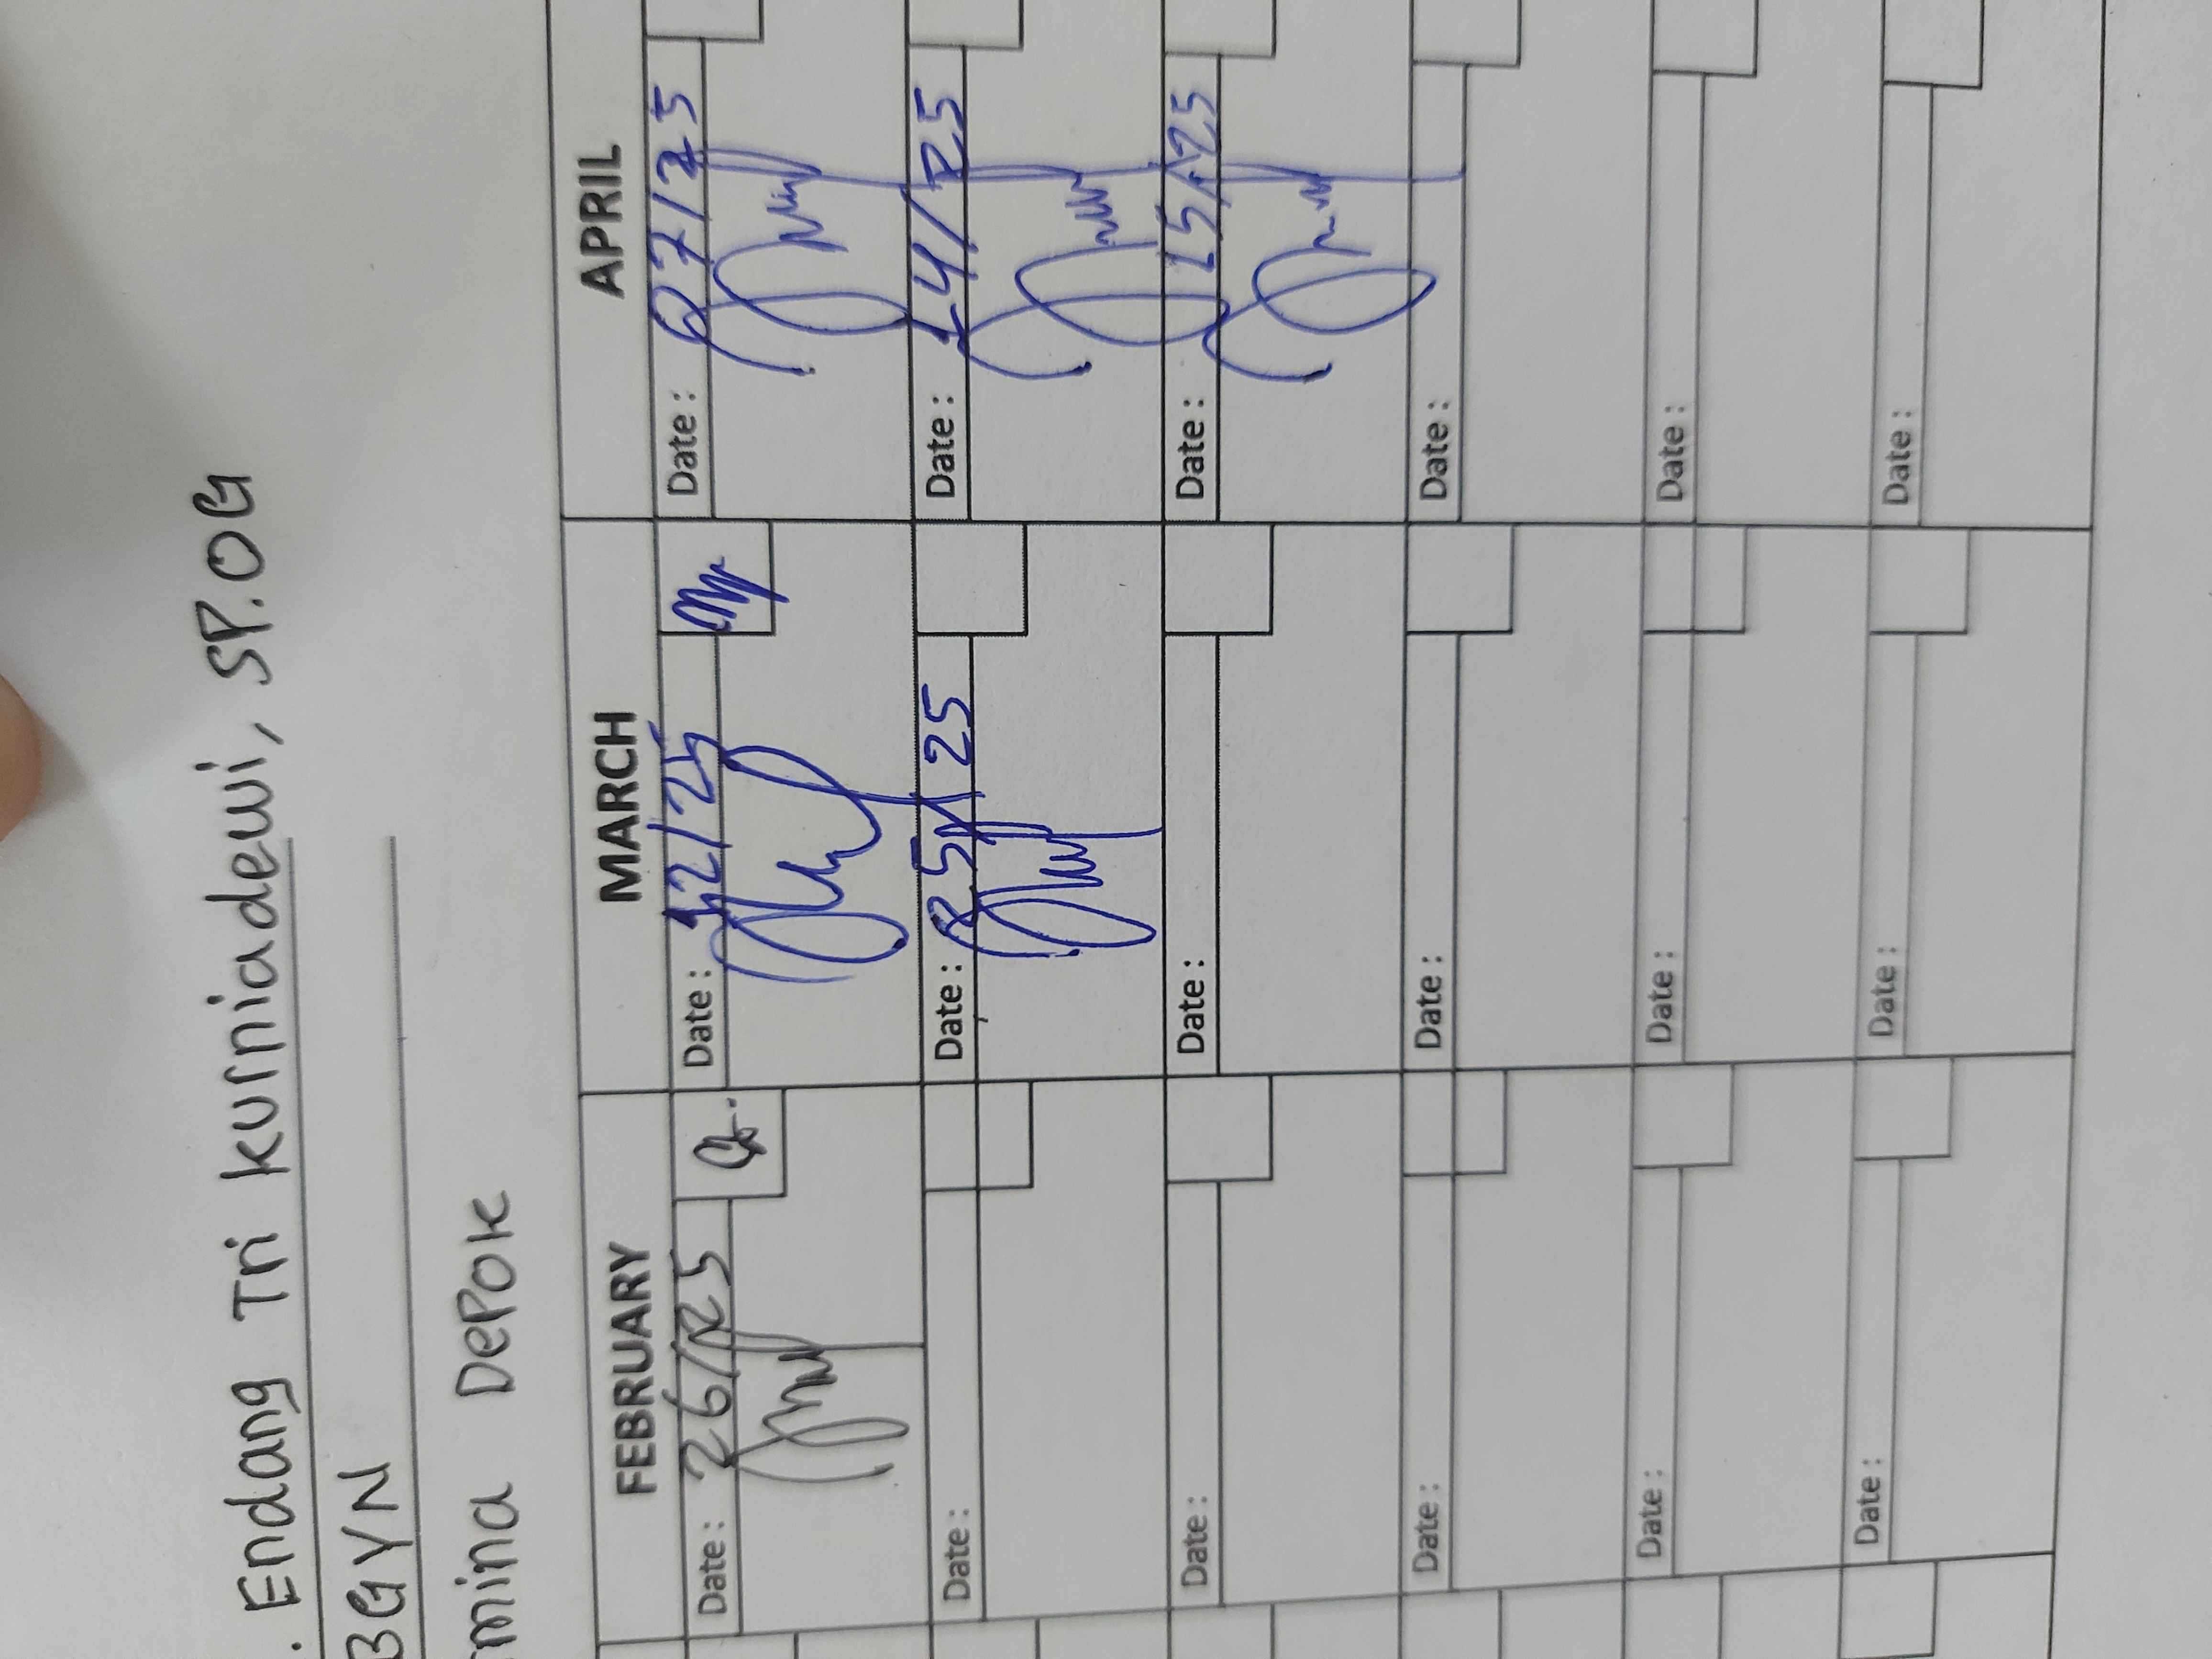 . Endang Tri Kurniadewi, SP.OG
BGYN
mina Depok
FEBRUARY MARCH APRIL
Date: 26/25 Date: 12/25 Date: 07/25
Date: Date: 25/25 Date: 14/25
Date: Date: Date: 15/25
Date: Date: Date:
Date: Date: Date:
Date: Date: Date: